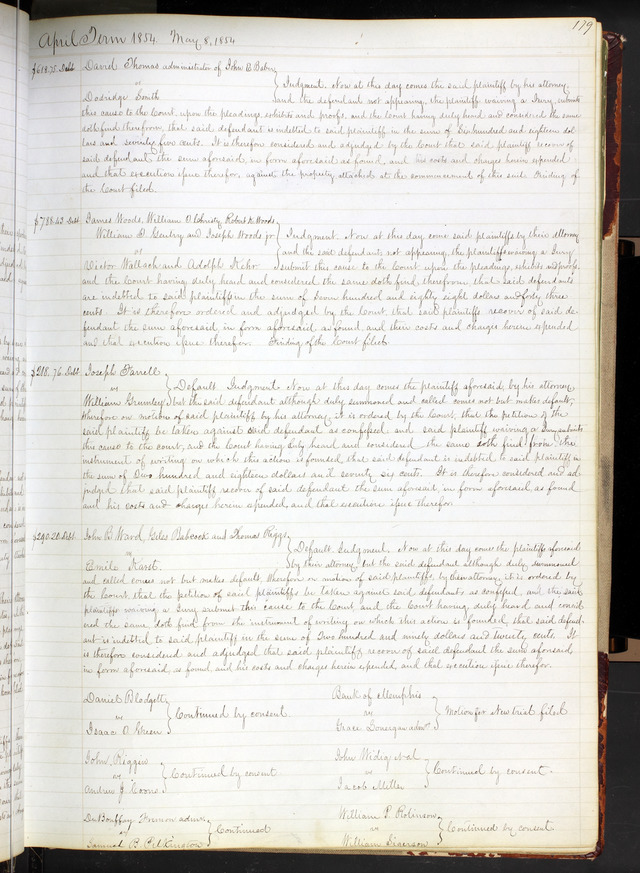 179
April Term 1854. May 8, 1854
$618.75 Debt David Thomas administrator of John B
vs Judgment. Now at this day comes the said plaintiff by his attorney
Dodridge Smith and the defendant not appearing, the plaintiff waiving a Jury, submits
this cause to the Court, upon the pleadings, exhibits and proofs, and the Court having duly heard and considered the same
doth find therefrom, that said defendant is indebted to said plaintiff in the sum of Six hundred and eighteen dol
lars and seventy five cents. It is therefore considered and adjudged by the Court that said plaintiff recover of
said defendant the sum aforesaid, in form aforesaid as found, and his costs and charges herein expended
and that execution issue therefor, against the property attached at the commencement of this suit. Finding of
the Court filed.
$788.43 Debt James Woods, William O Christy, Robert K Woods,
William D. Gentry and Joseph Woods jr Judgment. Now at this day come said plaintiffs by their attorney
vs and the said defendants not appearing, the plaintiffs waiving a Jury
Victor Wallach and Adolph submit this cause to the Court upon the pleadings, exhibits and proofs,
and the Court having duly heard and considered the same doth find, therefrom, that said defendants
are indebted to said plaintiffs in the sum of Seven hundred and eighty eight dollars and forty three
cents. It is therefore ordered and adjudged by the Court that said plaintiffs recover of said de-
fendant the sum aforesaid in form aforesaid as found and their costs and charges herein expended
and that execution issue therefor. Finding of the Court filed.
$218.76 Debt Joseph Farrell
vs Default Judgment Now at this day comes the plaintiff aforesaid, by his attorney
William Grumley but the said defendant although duly summoned and called comes not but makes default,
therefore on motion of said plaintiff by his attorney, it is ordered by the Court, that the petition of the
said plaintiff be taken against said defendant as confessed and said plaintiff waiving a Jury submits
this cause to the court, and the Court having duly heard and considered the same doth find from the
instrument of writing on which this action is founded, that said defendant is indebted to said plaintiff in
the sum of Two hundred and eighteen dollars and seventy six cents. It is therefore considered and ad-
judged that said plaintiff recover of said defendant the sum aforesaid in form aforesaid as found
and his costs and charges herein expended, and that execution issue therefor.
$290.20 Debt. John B. Ward, Giles Babcock and Thomas Riggs
vs Default. Judgment. Now at this day come the plaintiffs aforesaid
Emile Karst. by their attorney, but the said defendant although duly summoned
and called comes not but makes default, therefore on motion of said plaintiffs by their attorney, it is ordered by
the Court, that the petition of said plaintiffs be taken against said defendant as confessed, and the said
plaintiffs waiving a Jury submit this cause to the Court and the Court having duly heard and consid-
ered the same doth find from the instrument of writing on which this action is founded, that said defend-
ant is indebted to said plaintiff in the sum of Two hundred and ninety dollars and twenty cents. It
is therefore considered and adjudged that said plaintiffs recover of said defendant the sum aforesaid
in form aforesaid, as found, and his costs and charges herein expended, and that execution issue therefor.
Daniel Blodgett
vs Continued by consent
Isaac O Green
Bank of Memphis
vs Motion for New trial filed
Grace Donergan admx
John Riggin
vs Continued by consent
Andrew J Coons
John et al
vs Continued by consent.
Jacob Miller
Freeman admr.
vs Continued
Samuel B. Pilkington
William P. Robinson
vs Continued by consent
William Sigerson